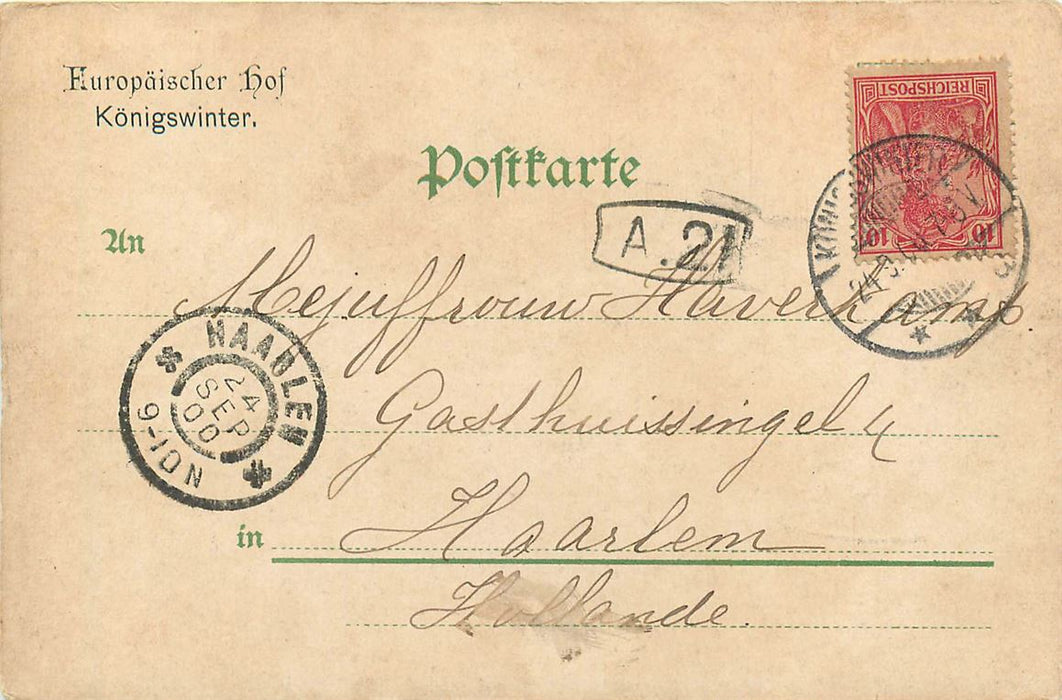 Europäischer Hof
Königswinter.
Postkarte
REICHSPOST
10 10
A.21
An
Mejuffrouw Haverkamp.
HAARLEM
24
SEP
00
9-10N
Gasthuissingel 4
in
Haarlem
Hollande.